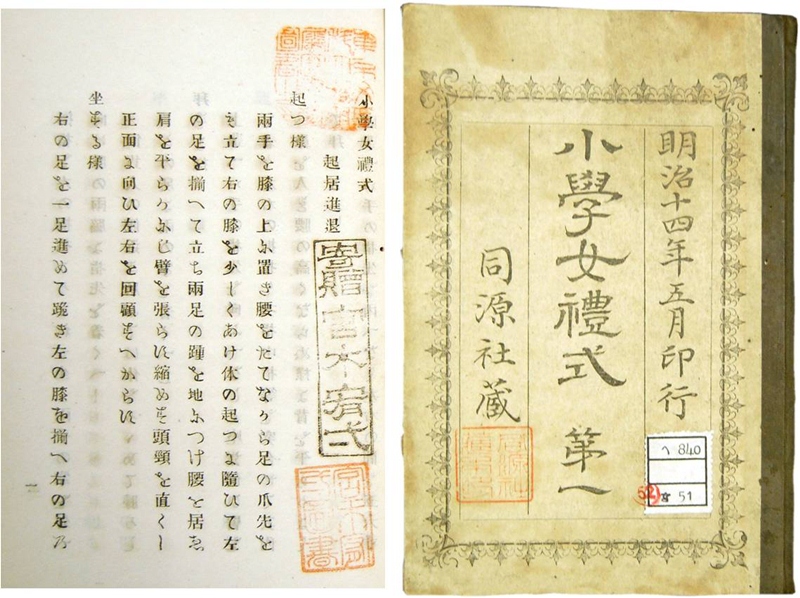 明治十四年五月印行
小學女禮式 第一
同源社蔵
ヘ840
51
小學女禮式
起居進退
起つ樣
兩手を膝の上に置き腰をたてなから足の爪先を
立て右の膝を少しくあけ体の起つに隨ひて左
の足を揃へて立ち兩足の踵を地につけ腰を居ゑ
肩を平らかにし臂を張らす縮めす頭頸を直くし
正面に向ひ左右を回顧すへからす
坐する樣
右の足を一足進めて跪き左の膝を揃へ右の足乃
寄贈